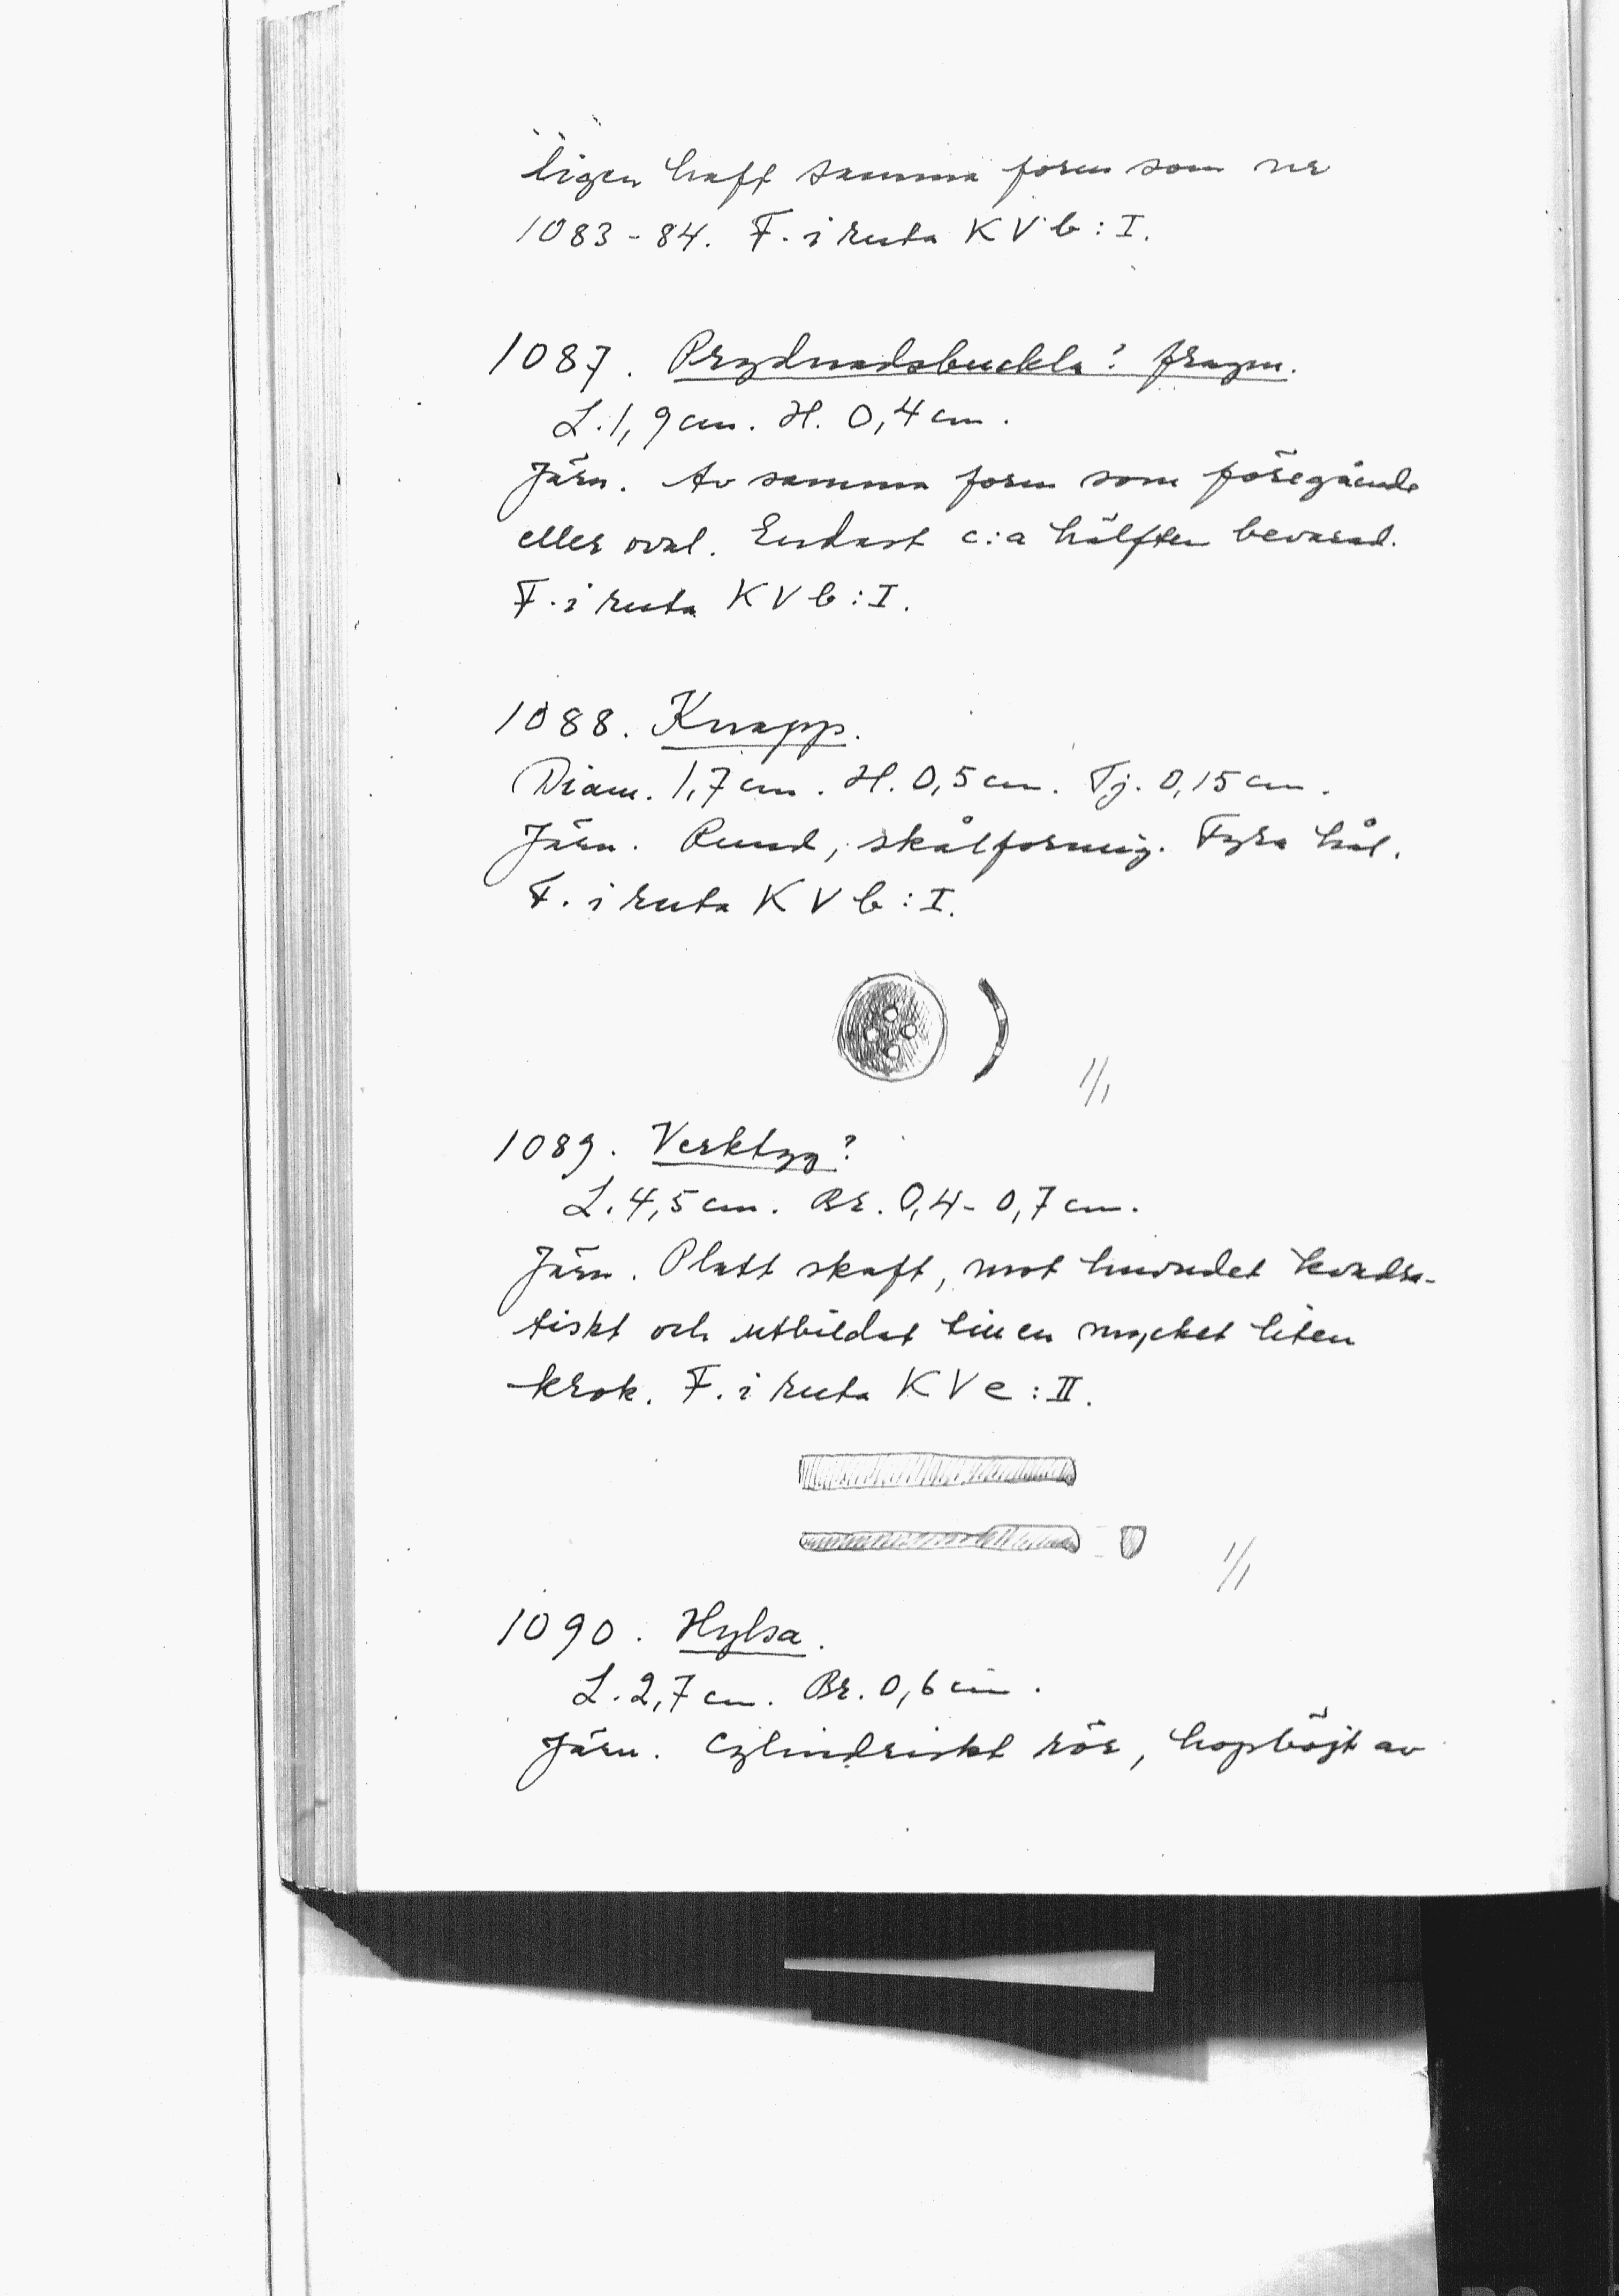 ligen haft samma form som nr
1083-84. F. i ruta K V b : I.
1087. Prydnadsbuckla? fragm.
L. 1,9 cm. H. 0,4 cm.
Järn. Av samma form som föregående
eller oval. Endast c:a hälften bevarad.
F. i ruta K V b : I.
1088. Knapp.
Diam. 1,7 cm. H. 0,5 cm. Tj. 0,15 cm.
Järn. Rund, skålformig. Fyra hål.
F. i ruta K V b : I.
1/1
1089. Verktyg?
L. 4,5 cm. Br. 0,4 - 0,7 cm.
Järn. Platt skaft, mot huvudet kvadra-
tiskt och utbildat till en mycket liten
krok. F. i ruta K V e : II.
1/1
1090. Hylsa.
L. 2,7 cm. Br. 0,6 cm.
Järn. Cylindriskt rör, hopböjt av